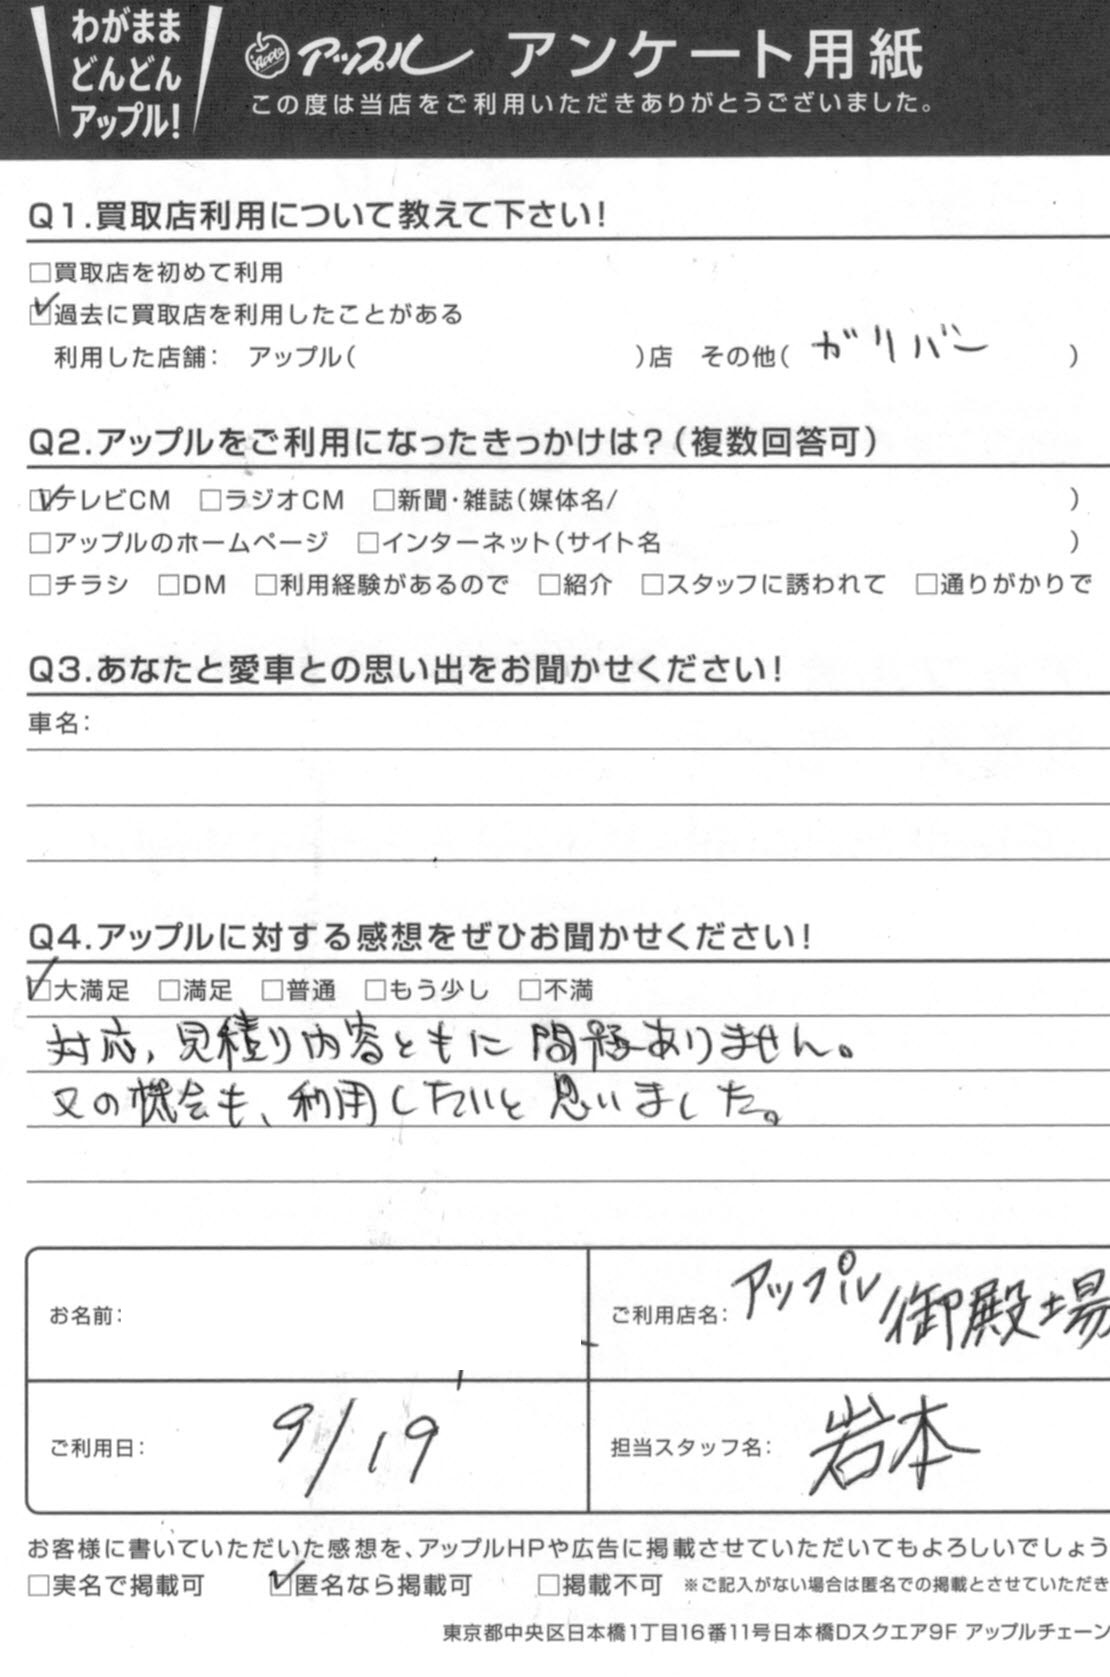 わがまま
どんどん
アップル!
Apple アップル アンケート用紙
この度は当店をご利用いただきありがとうございました。
Q1.買取店利用について教えて下さい!
□買取店を初めて利用
☑過去に買取店を利用したことがある
利用した店舗: アップル( )店 その他( ガリバー )
Q2.アップルをご利用になったきっかけは?(複数回答可)
☑テレビCM □ラジオCM □新聞・雑誌(媒体名/ )
□アップルのホームページ □インターネット(サイト名 )
□チラシ □DM □利用経験があるので □紹介 □スタッフに誘われて □通りがかりで
Q3.あなたと愛車との思い出をお聞かせください!
車名:
Q4.アップルに対する感想をぜひお聞かせください!
☑大満足 □満足 □普通 □もう少し □不満
対応, 見積り内容ともに 問題ありません。
又の機会も、利用したいと 思いました。
お名前:
ご利用店名: アップル 御殿場
ご利用日: 9/19
担当スタッフ名: 岩本
お客様に書いていただいた感想を、アップルHPや広告に掲載させていただいてもよろしいでしょう
□実名で掲載可 ☑匿名なら掲載可 □掲載不可 ※ご記入がない場合は匿名での掲載とさせていただき
東京都中央区日本橋1丁目16番11号日本橋Dスクエア9F アップルチェーン